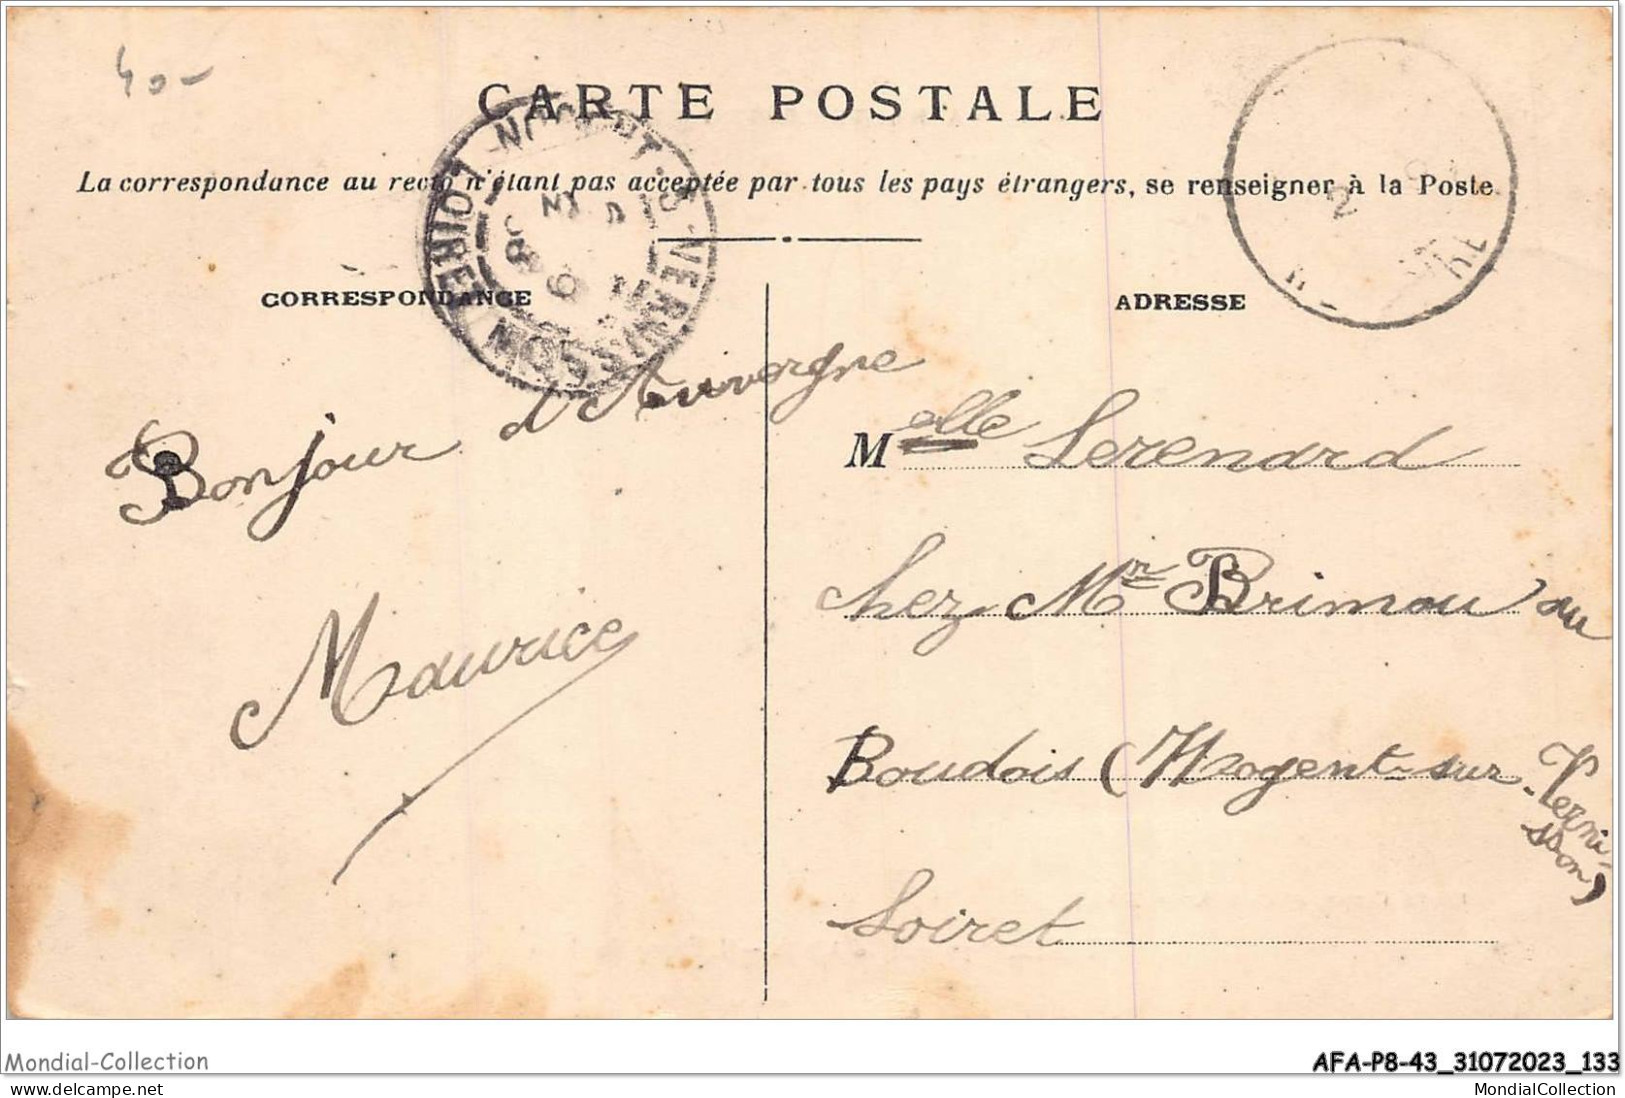 40-
CARTE POSTALE
La correspondance au recto n'étant pas acceptée par tous les pays étrangers, se renseigner à la Poste
NOGENT-S-VERNISSON
LOIRET
CORRESPONDANCE
ADRESSE
Bonjour d'Auvergne
Maurice
Melle Lerenard
chez Mr Brimou au
Boudois (Nogent-sur-Verni-
sson)
Loiret
Mondial-Collection
AFA-P8-43_31072023_133
delcampe.net
MondialCollection